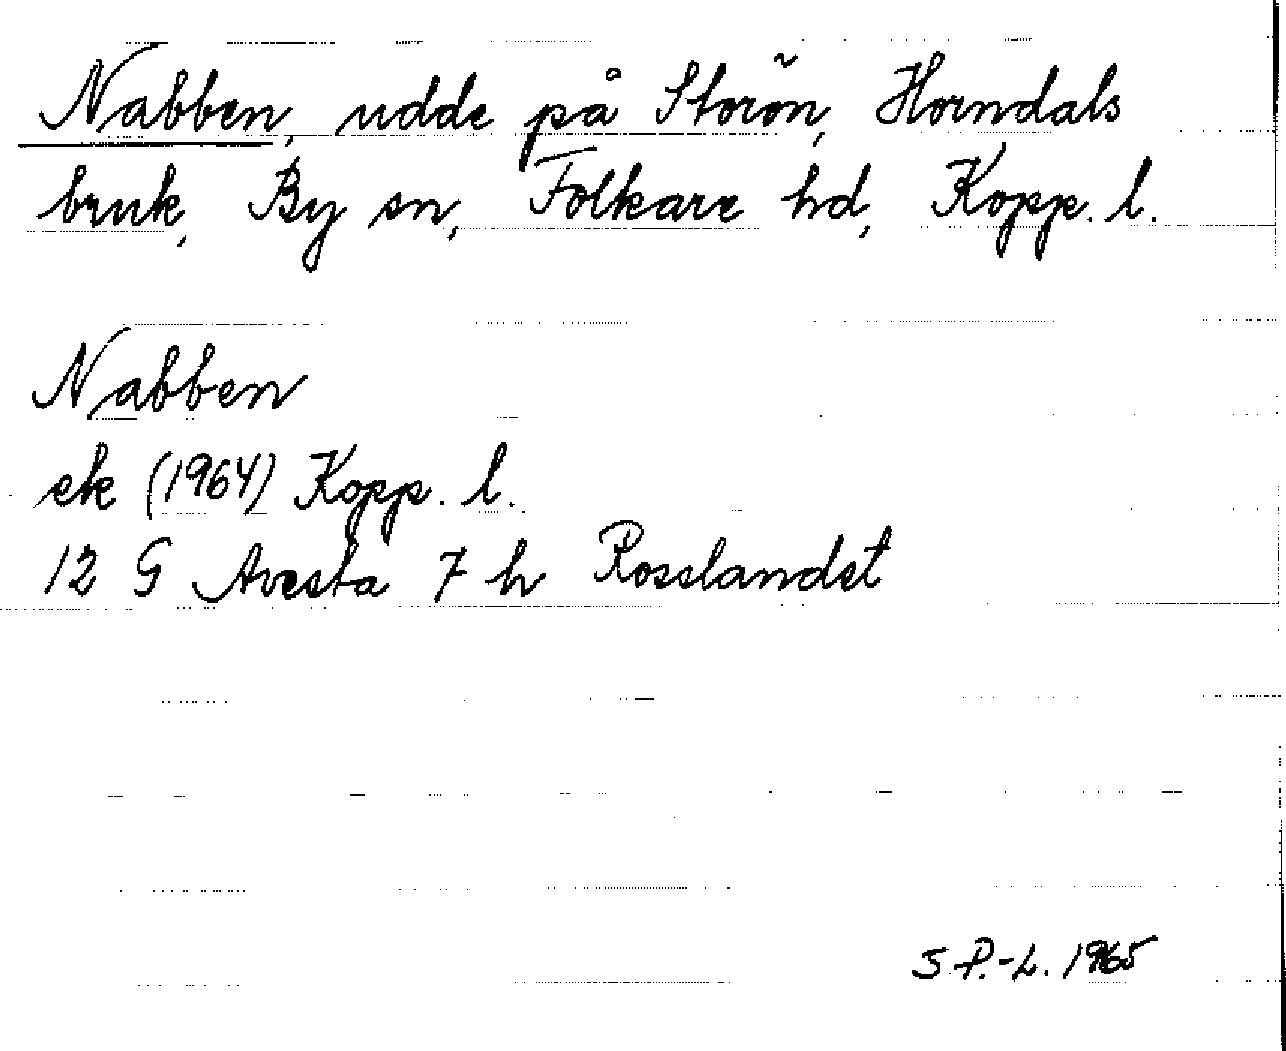 Nabben, udde på Storön, Horndals
bruk, By sn, Folkare hd, Kopp. l.
Nabben
ek (1964) Kopp. l.
12 G Avesta 7 h Rosslandet
S.P.-L. 1965